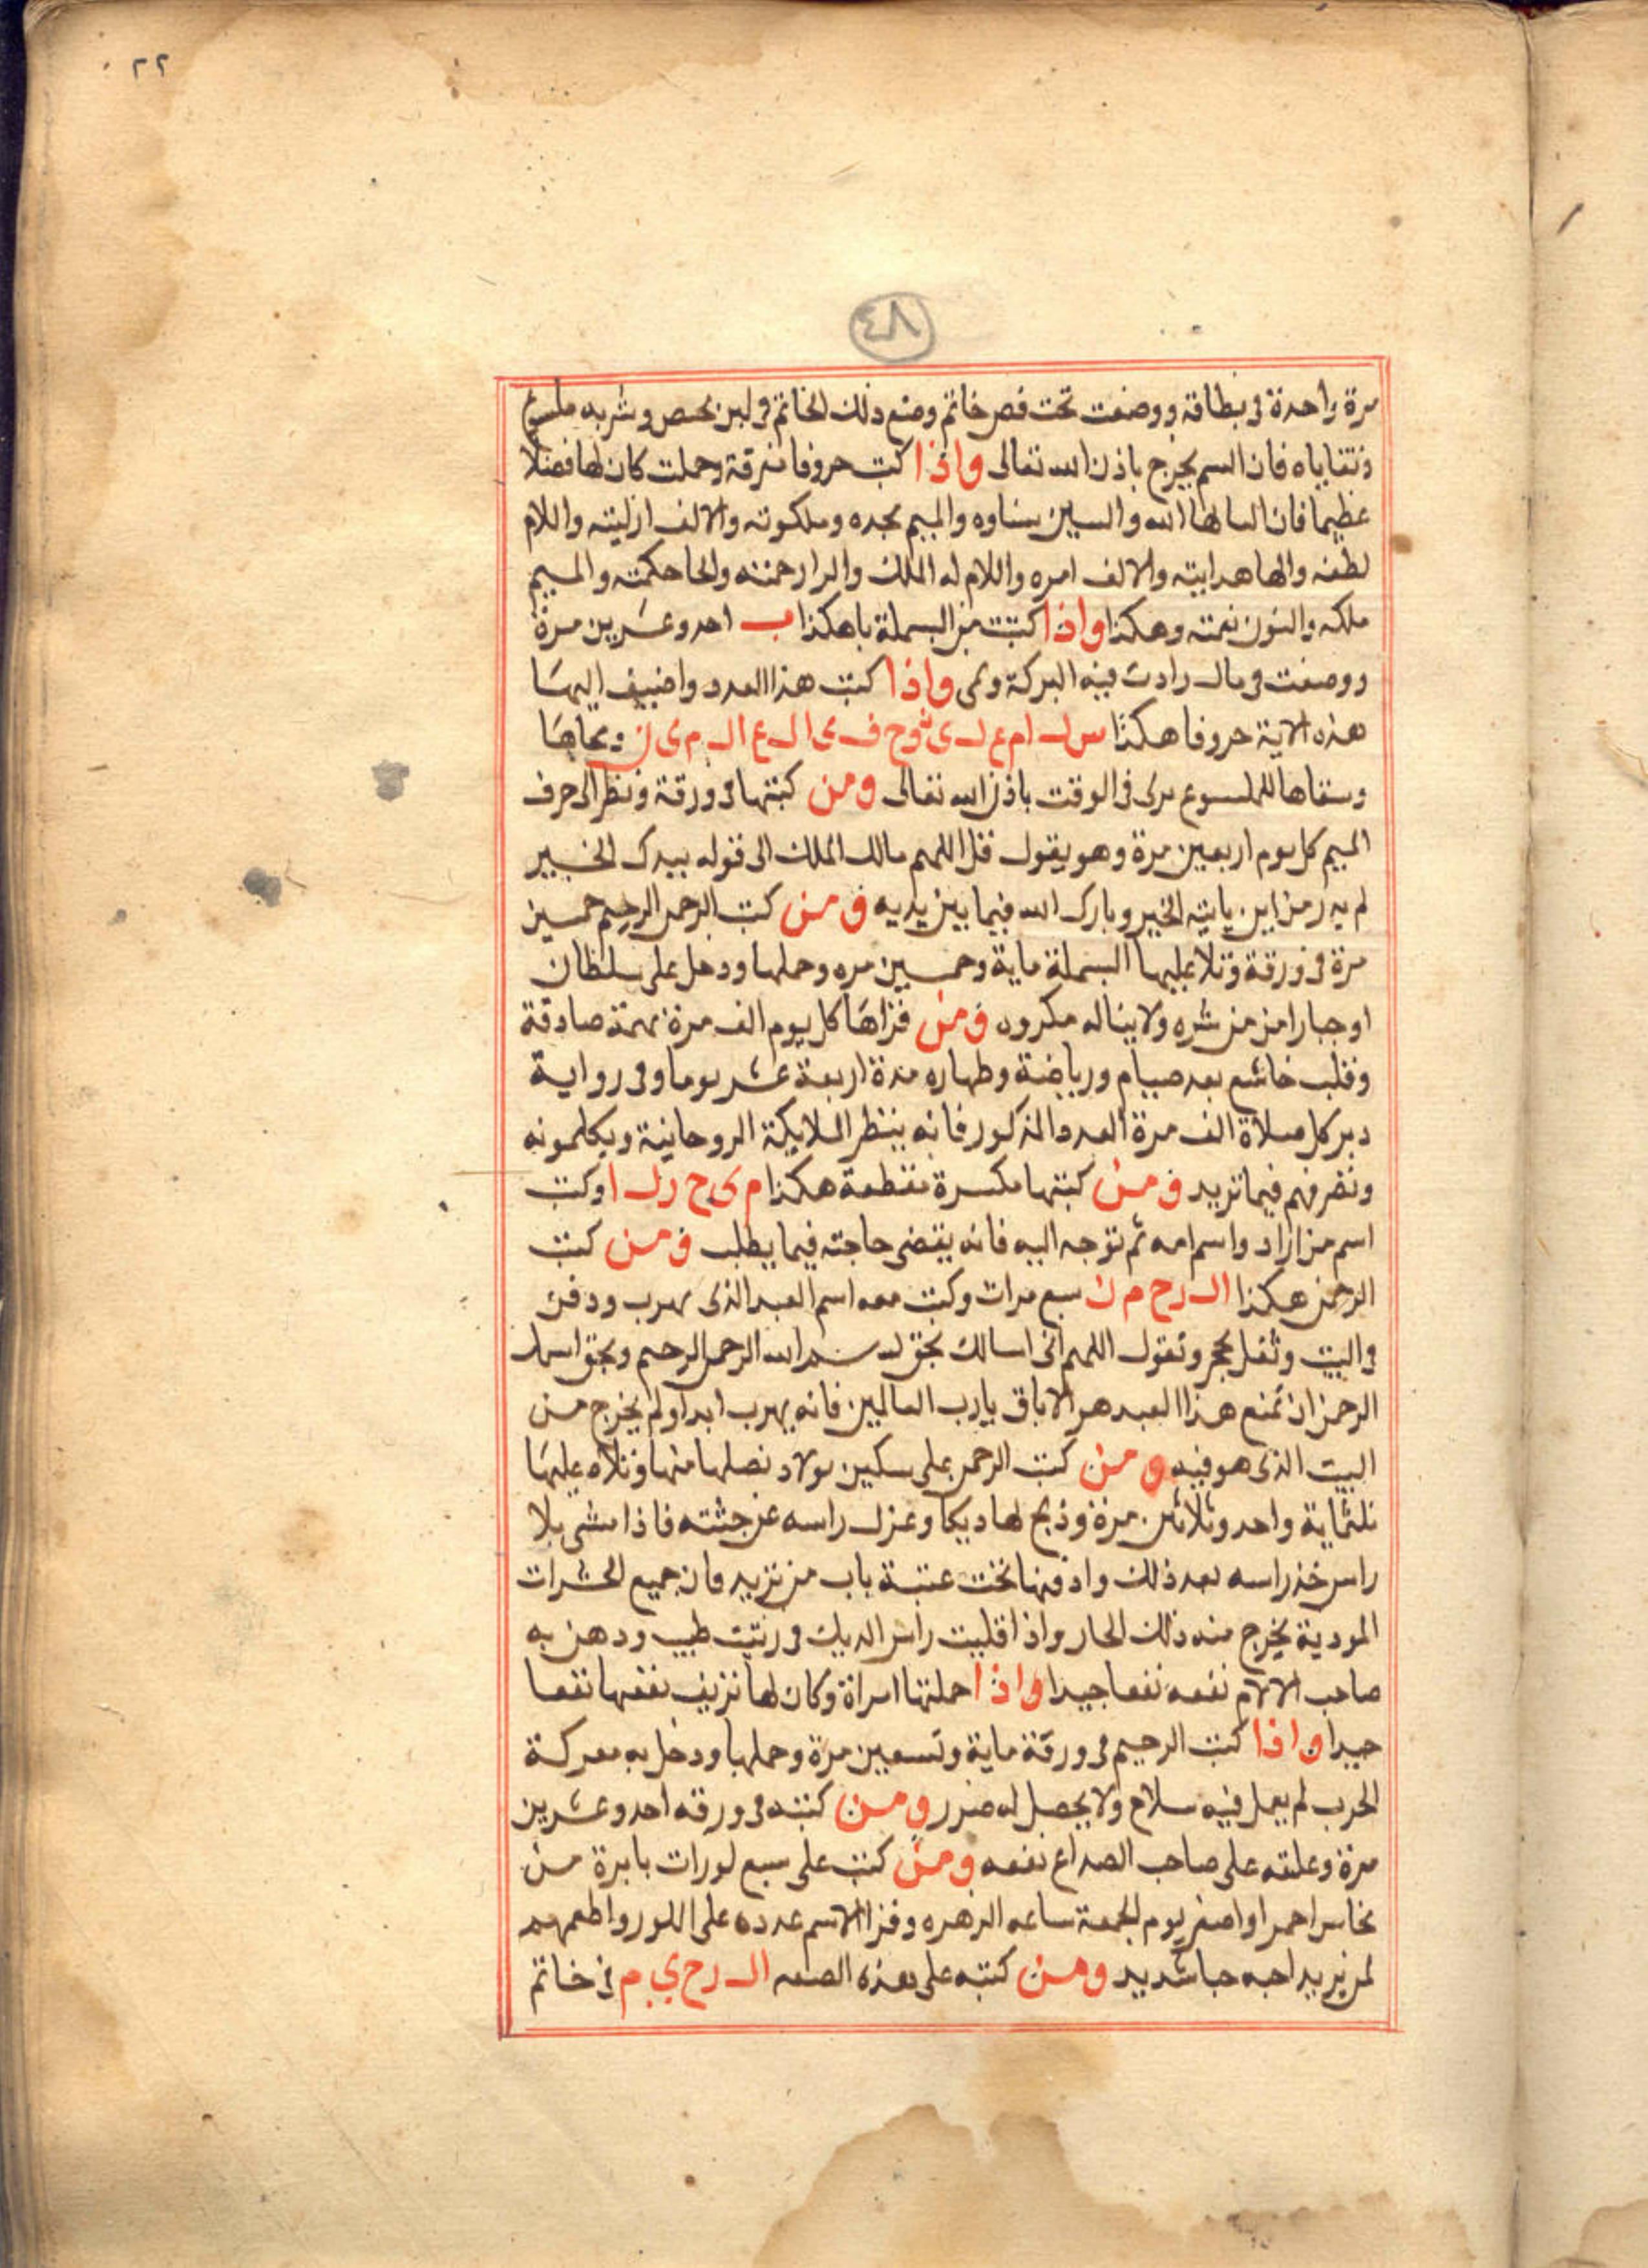 ٢٢
٤٨
مرة واحدة فى بطاقة ووضعت تحت فص خاتم ووضع ذلك الخاتم فى لبن وشربه ملسوع
فان السم يخرج باذن الله تعالى واذا كتبت حروفا مفرقة وحملت كان لها فضلا
عظيما فان البا لها الله والسين سناوه والميم مجده وملكوته والالف ازليته واللام
لطفه والها هدايته والالف امره واللام له الملك والرا رحمته والحا حكمته والميم
ملكه والنون نعمته وهكذا واذا كتبت من البسملة با هكذا ب احد وعشرين مرة
ووضعت فى مال زادت فيه البركة ونمى واذا كتبت هذا العدد واضيف اليها
هذه الاية حروفا هكذا س ل ا م ع ل ى ن و ح ف ى ا ل ع ا ل م ى ن ومحاها
وسقاها للملسوع برى فى الوقت باذن الله تعالى ومن كتبها فى ورقة ونظر الى حرف
الميم كل يوم اربعين مرة وهو يقول قل اللهم مالك الملك الى قوله بيدك الخير
لم يدر من اين ياتيه الخير وبارك الله فيما بين يديه ومن كتب الرحمن الرحيم خمسين
مرة فى ورقة وتلا عليها البسملة ماية وخمسين مره وحملها ودخل على سلطان
او جبار امن من شره ولا يناله مكروه ومن قراها كل يوم الف مرة بهمة صادقة
وقلب خاشع بعد صيام ورياضة وطهاره مدة اربعة عشر يوما وفى رواية
دبر كل صلاة الف مرة العدد المذكور فانه ينظر الملايكة الروحانية ويكلمونه
وتصرفهم فيما تريد ومن كتبها مكسرة مقطعة هكذا م ى ح ر ل ا وكتب
اسم من اراد واسم امه ثم توجه اليه فانه يقضى حاجته فيما يطلب ومن كتب
الرحمن هكذا ا ل ر ح م ن سبع مرات وكتب معه اسم العبد الذى يهرب ودفن
فى البيت وثقل بحجر وتقول اللهم انى اسالك بحق بسم الله الرحمن الرحيم وبحق اسمك
الرحمن ان تمنع هذا العبد هر الاباق يارب العالمين فانه يهرب ابدا ولم يخرج من
البيت الذى هو فيه ومن كتب الرحمن على سكين بولاد نصلها منها وتلاه عليها
ثلثماية واحد وثلاثين مرة وذبح لها ديكا وعزل راسه عن جثته فاذا مشى بلا
راس خذ راسه بعد ذلك وادفنها تحت عتبة باب من تريد فان جميع الحشرات
الموذية يخرج منه ذلك الحار واذا اقليت راس الديك فى زيت طيب ودهن به
صاحب الالام نفعه نفعا جيدا واذا حملتها امراة وكان لها نزيف نفعها نفعا
جيدا واذا كتبت الرحيم فى ورقة ماية وتسعين مرة وحملها ودخل به معركة
الحرب لم يعمل فيه سلاح ولا يحصل له ضرر ومن كتبه فى ورقه احد وعشرين
مرة وعلقه على صاحب الصداع نفعه ومن كتب على سبع لوزات بابرة من
نحاس احمر او اصفر يوم الجمعة ساعه الزهره وقرا الاسم عدده على اللوز واطعمهم
لمن يريد احبه حبا شديد ومن كتبه على هذه الصفه ا ل ر ح ي م فى خاتم